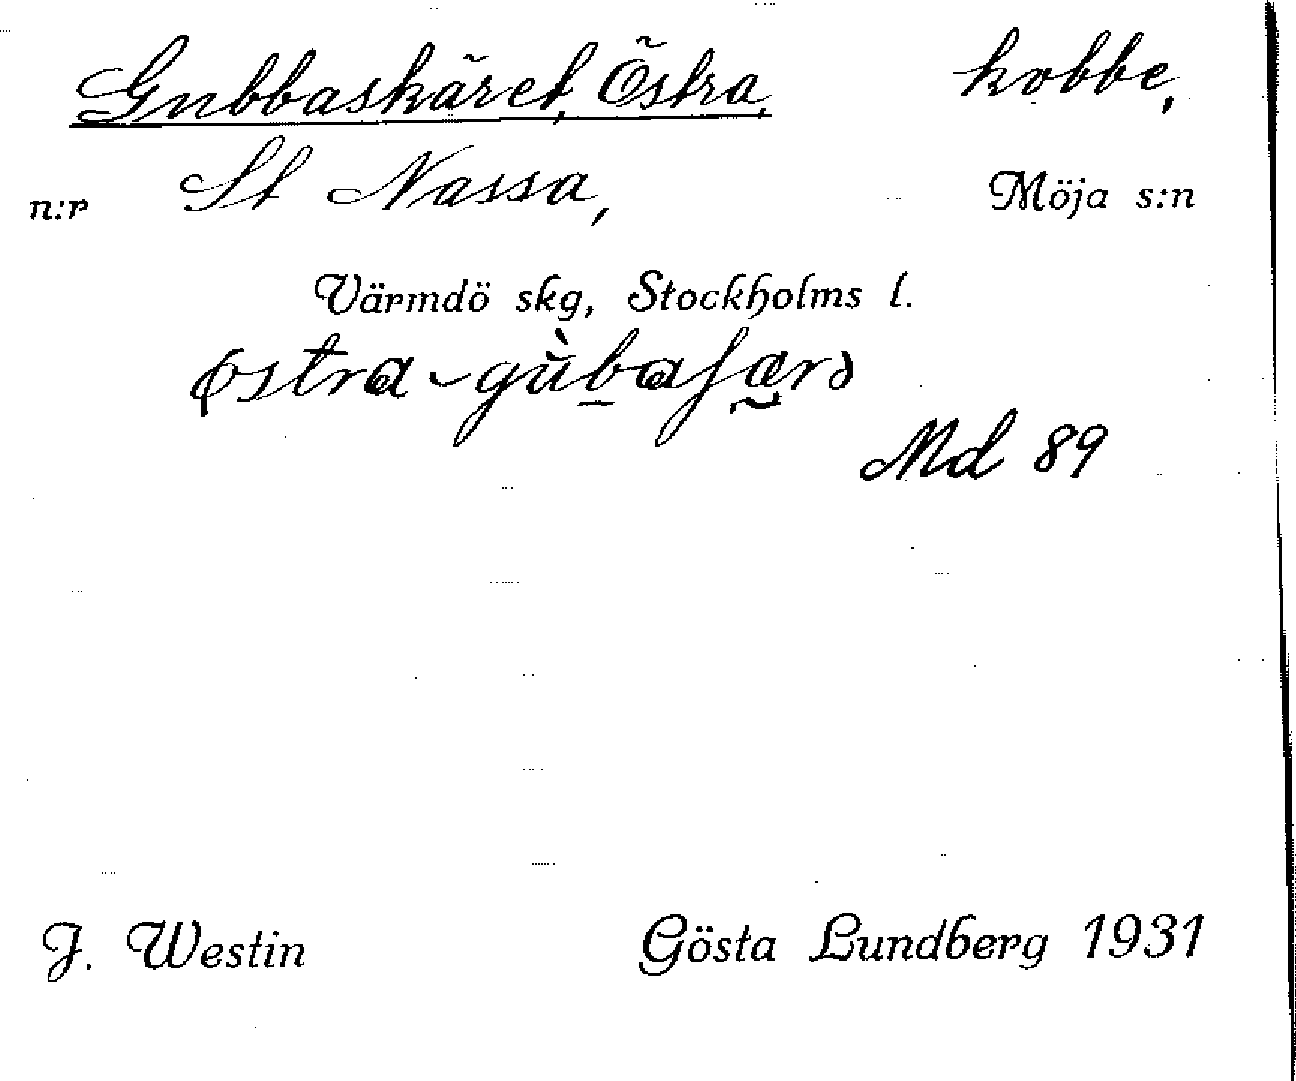 Gubbaskäret, Östra, kobbe,
n:r St Nassa, Möja s:n
Värmdö skg, Stockholms l.
Md 89
J. Westin Gösta Lundberg 1931